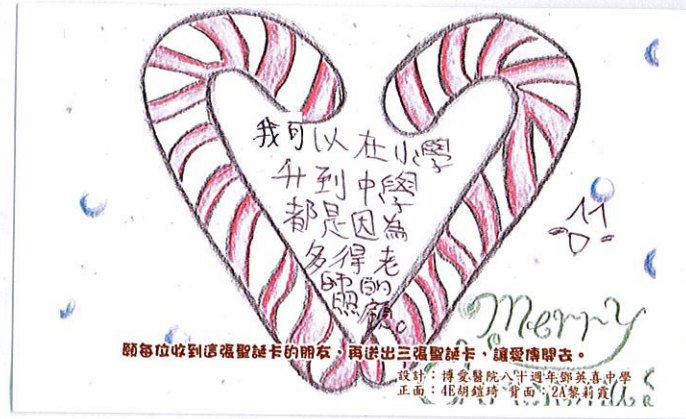 我可以在小學
升到中學
都是因為
多得老
師的
照顧。
Merry
Christmas
願每位收到這張聖誕卡的朋友，再送出三張聖誕卡，讓愛傳開去。
設計：博愛醫院八十週年鄧英喜中學
正面：4E胡鎧琦 背面：2A黎莉霞